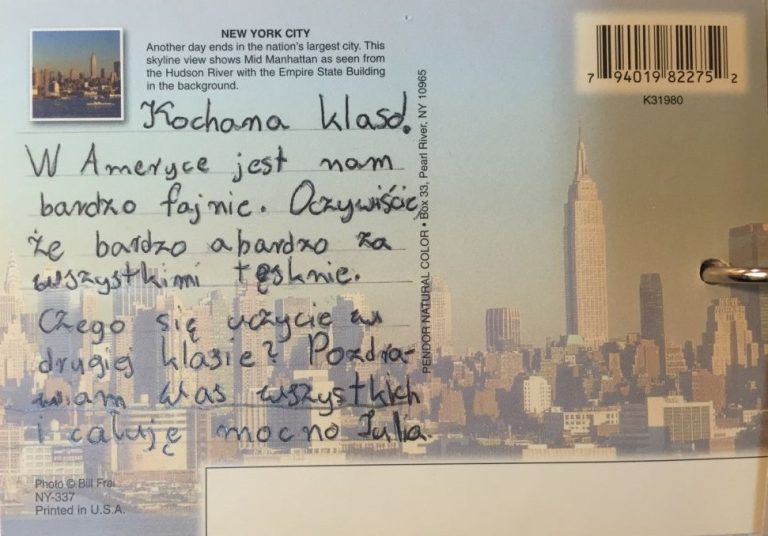 NEW YORK CITY
Another day ends in the nation's largest city. This
skyline view shows Mid Manhattan as seen from
the Hudson River with the Empire State Building
in the background.
Kochana klaso!
W Ameryce jest nam
bardzo fajnie. Oczywiście,
że bardzo a bardzo za
wszystkimi tęsknie.
Czego się uczycie w
drugiej klasie? Pozdra-
wiam was wszystkich
i całuję mocno Julia.
Photo © Bill Frai
NY-337
Printed in U.S.A.
PENDOR NATURAL COLOR • Box 33, Pearl River, NY 10965
7 94019 82275 2
K31980